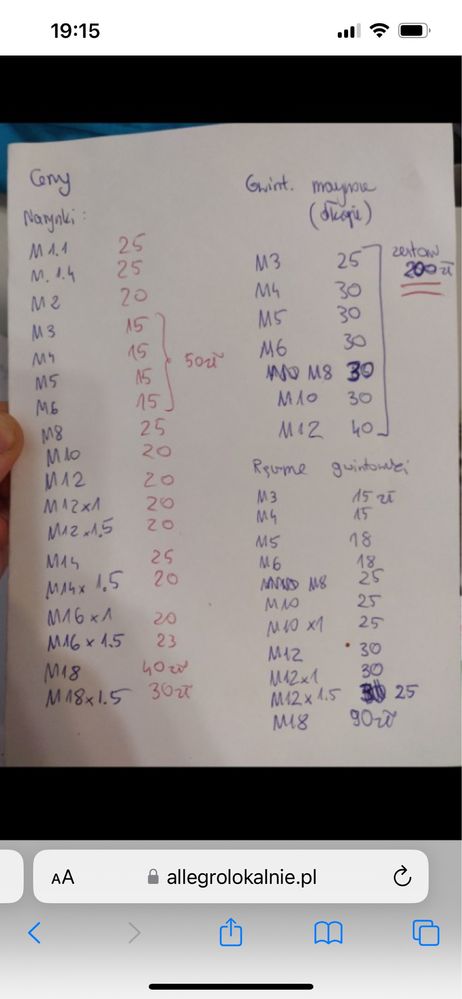 19:15
Ceny
Narzynki:
M1.1 25
M.1.4 25
M2 20
M3 15
M4 15
M5 15
M6 15
50zł
M8 25
M10 20
M12 20
M12x1 20
M12x1.5 20
M14 25
M14x1.5 20
M16x1 20
M16x1.5 23
M18 40zł
M18x1.5 30zł
Gwint. maszynowe
(długie)
M3 25
M4 30
M5 30
M6 30
M8 30
M10 30
M12 40
zestaw
200 zł
Ręczne gwintowniki
M3 15 zł
M4 15
M5 18
M6 18
M8 25
M10 25
M10x1 25
M12 30
M12x1 30
M12x1.5 25
M18 90zł
AA allegrolokalnie.pl